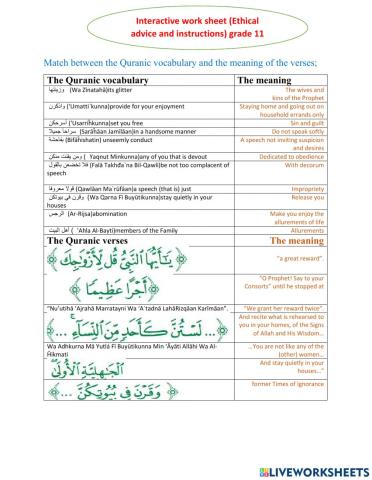 Interactive work sheet (Ethical
advice and instructions) grade 11
Match between the Quranic vocabulary and the meaning of the verses;
The Quranic vocabulary The meaning
وزينتها (Wa Zinatahā)its glitter The wives and
kins of the Prophet
واذكرن ('Umatti`kunna)provide for your enjoyment Staying home and going out on
household errands only
أسرحكن ('Usarriĥkunna)set you free Sin and guilt
سراحا جميلا (Sarāĥāan Jamīlāan)in a handsome manner Do not speak softly
بفاحشة (Bifāĥishatin) unseemly conduct A speech not inviting suspicion
and desires
ومن يقنت منكن ( Yaqnut Minkunna)any of you that is devout Dedicated to obedience
فلا تخضعن بالقول (Falā Takhđa`na Bil-Qawli)be not too complacent of
speech With decorum
قولا معروفا (Qawlāan Ma`rūfāan)a speech (that is) just Impropriety
وقرن في بيوتكن (Wa Qarna Fī Buyūtikunna)stay quietly in your
houses Release you
الرجس (Ar-Rijsa)abomination Make you enjoy the
allurements of life
أهل البيت ( 'Ahla Al-Bayti)members of the Family Allurements
The Quranic verses The meaning
﴿ يَٰٓأَيُّهَا ٱلنَّبِيُّ قُل لِّأَزْوَٰجِكَ ﴾ "a great reward".
﴿ أَجْرًا عَظِيمًا ﴾ "O Prophet! Say to your
Consorts" until he stopped at
"Nu'utihā 'Ajrahā Marratayni Wa 'A`tadnā LahāRizqāan Karīmāan". "We grant her reward twice".
﴿ ... لَسْتُنَّ كَأَحَدٍ مِّنَ ٱلنِّسَآءِ ... ﴾ And recite what is rehearsed to
you in your homes, of the Signs
of Allah and His Wisdom...
Wa Adhkurna Mā Yutlá Fī Buyūtikunna Min 'Āyāti Allāhi Wa Al-
Ĥikmati ...You are not like any of the
(other) women...
ٱلْجَٰهِلِيَّةِ ٱلْأُولَىٰ And stay quietly in your
houses..."
﴿ وَقَرْنَ فِي بُيُوتِكُنَّ ... ﴾ former Times of Ignorance
LIVEWORKSHEETS